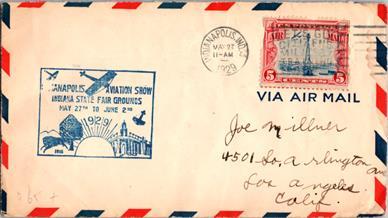 INDIANAPOLIS, IND.
MAY 27
11-AM
1929
U.S. POSTAGE
AIR MAIL
5 CENTS 5
VIA AIR MAIL
ANAPOLIS AVIATION SHOW
INDIANA STATE FAIR GROUNDS
MAY 27TH TO JUNE 2ND
1929
1816
Joe Millner
4501 So. Arlington av
Los Angeles
Calif.